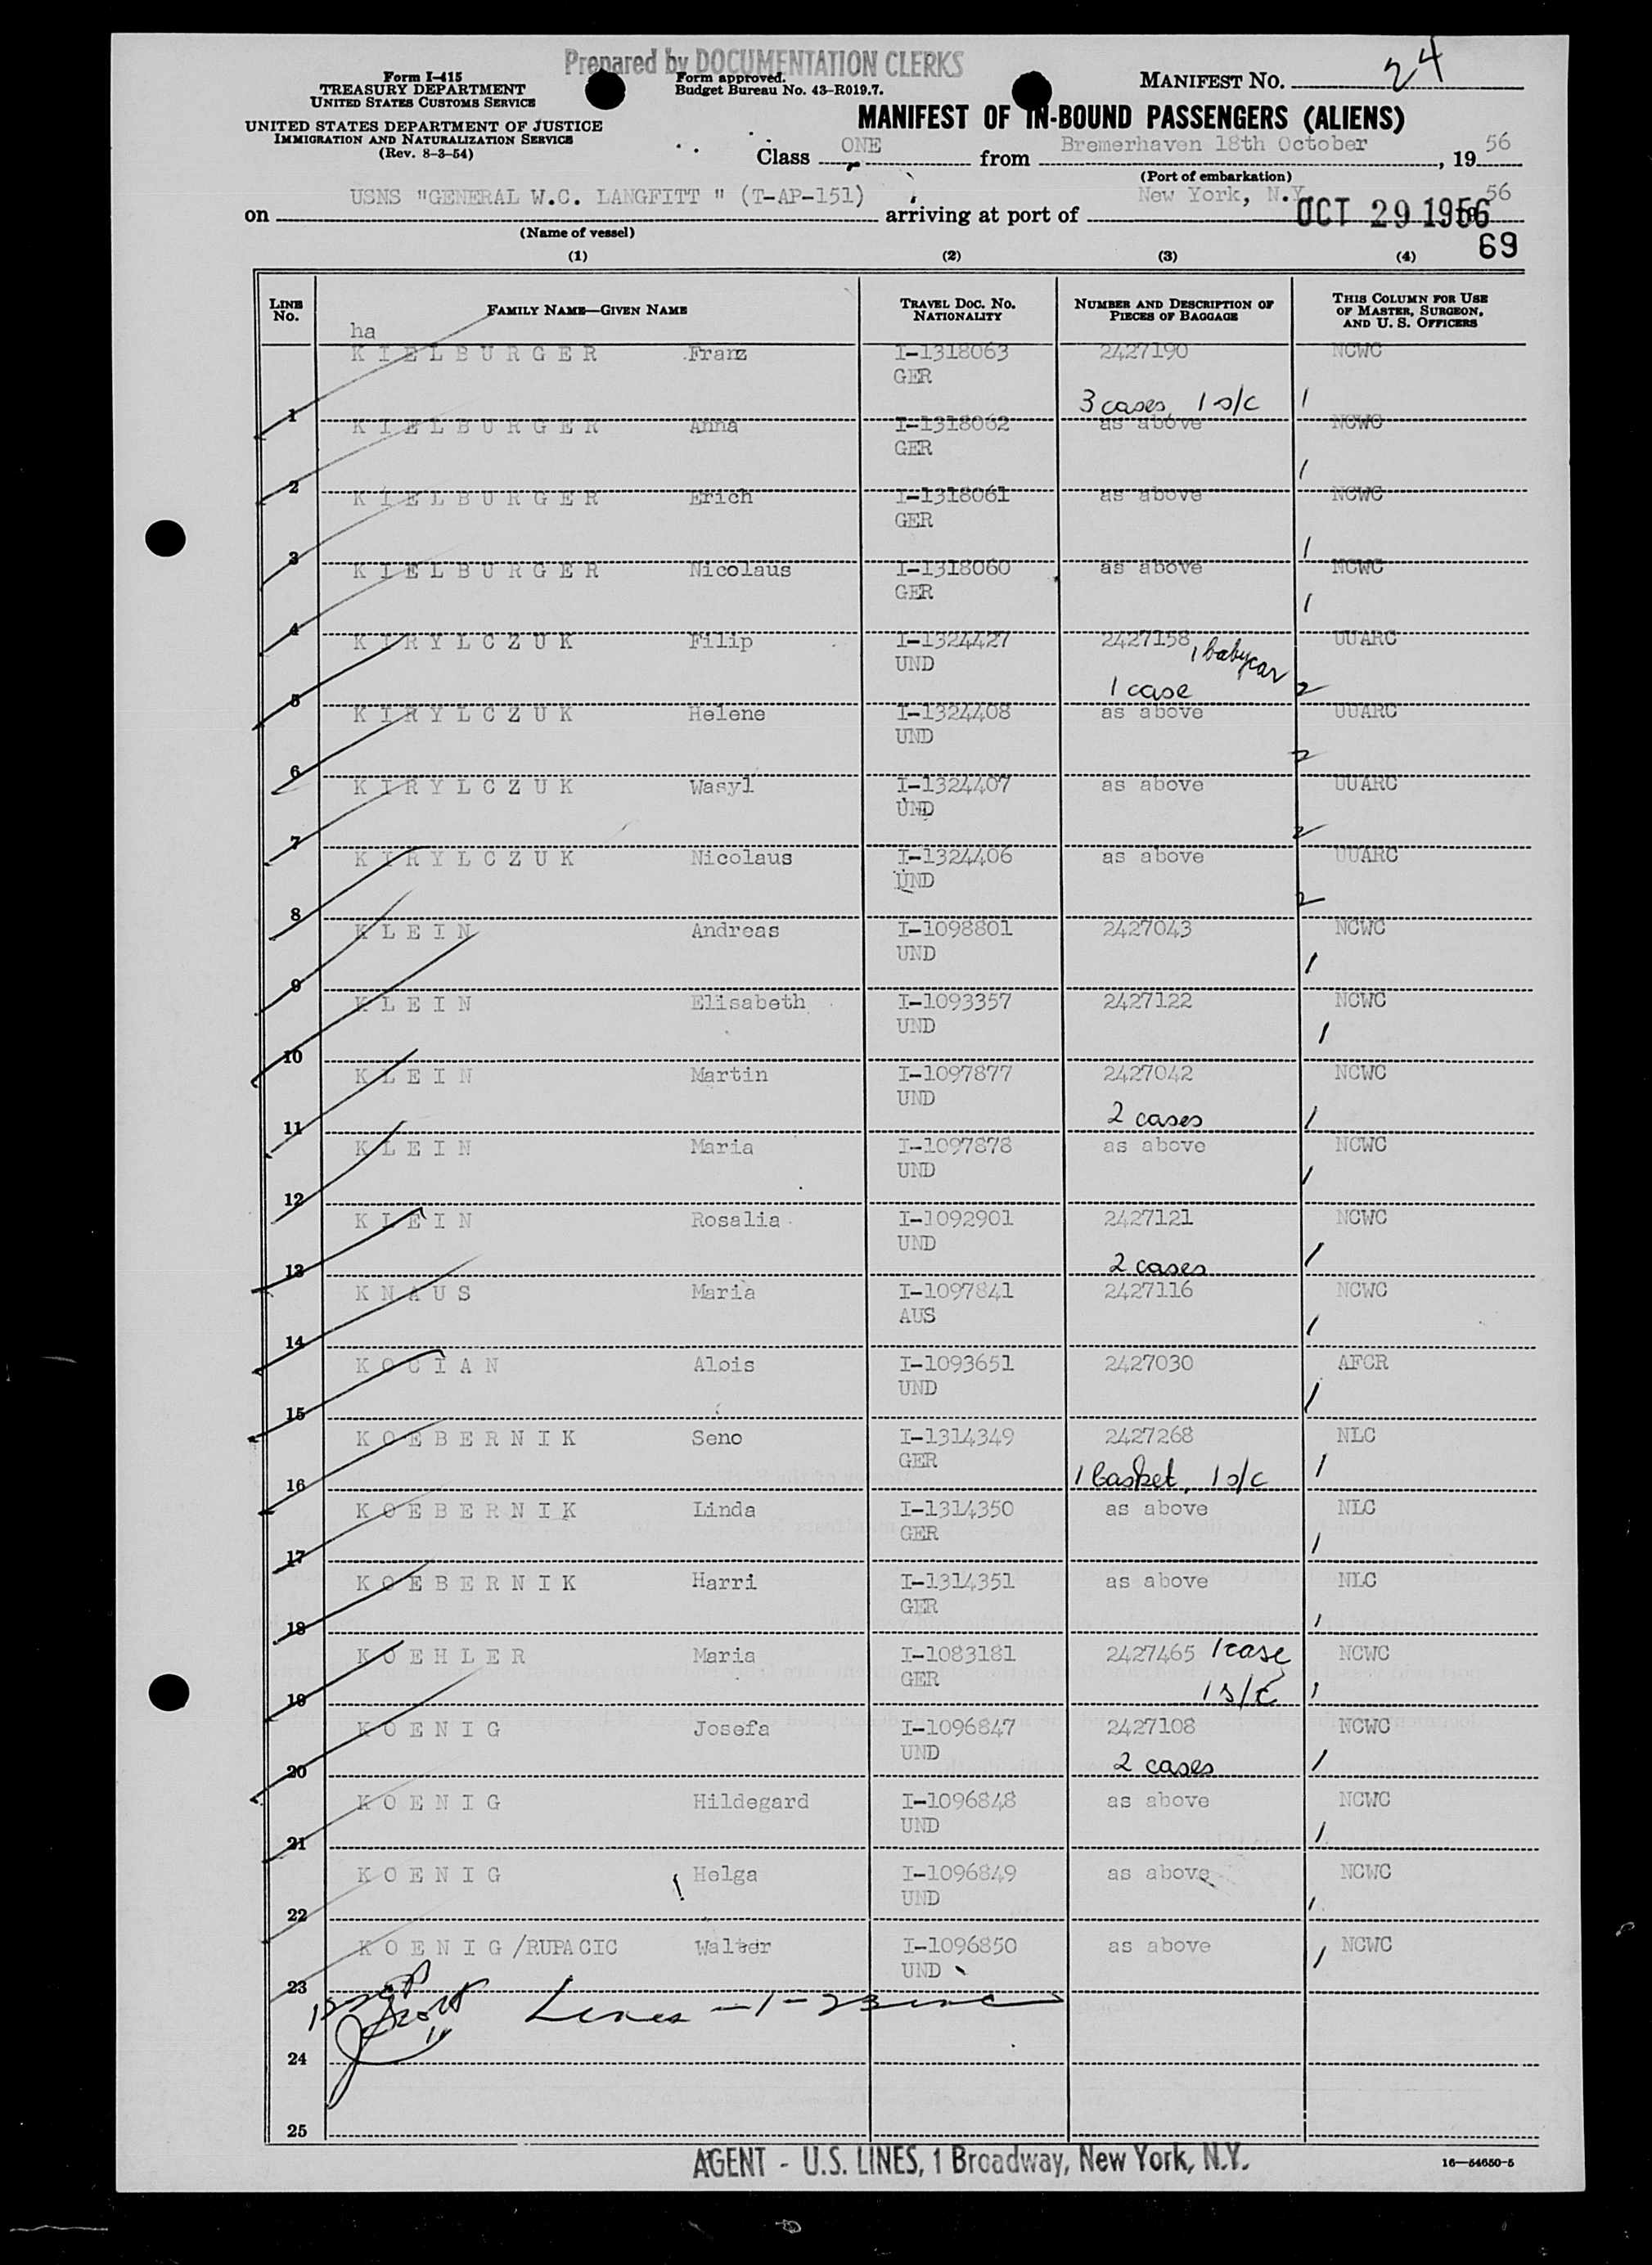 Prepared by DOCUMENTATION CLERKS
Form I-415
TREASURY DEPARTMENT
UNITED STATES CUSTOMS SERVICE
UNITED STATES DEPARTMENT OF JUSTICE
IMMIGRATION AND NATURALIZATION SERVICE
(Rev. 8-3-54)
Form approved.
Budget Bureau No. 43-R019.7.
MANIFEST NO. 24
MANIFEST OF IN-BOUND PASSENGERS (ALIENS)
Class ONE from Bremerhaven 18th October, 1956
(Port of embarkation)
on USNS "GENERAL W.C. LANGFITT " (T-AP-151) arriving at port of New York, N.Y. OCT 29 1956 56
(Name of vessel)
69
(1) (2) (3) (4)
LINE No. FAMILY NAME—GIVEN NAME TRAVEL DOC. NO. NATIONALITY NUMBER AND DESCRIPTION OF PIECES OF BAGGAGE THIS COLUMN FOR USE OF MASTER, SURGEON, AND U. S. OFFICERS
ha
KIELBURGER Franz I-1318063 2427190 NCWC
GER
1 3 cases, 1 s/c 1
KIELBURGER Anna I-1318062 as above NCWC
GER
2 1
KIELBURGER Erich I-1318061 as above NCWC
GER
3 1
KIELBURGER Nicolaus I-1318060 as above NCWC
GER
4 1
KIRYLCZUK Filip I-1324427 2427158 1 babycar UUARC
UND
5 1 case 2
KIRYLCZUK Helene I-1324408 as above UUARC
UND
6 2
KIRYLCZUK Wasyl I-1324407 as above UUARC
UND
7 2
KIRYLCZUK Nicolaus I-1324406 as above UUARC
UND
8 2
KLEIN Andreas I-1098801 2427043 NCWC
UND
9 1
KLEIN Elisabeth I-1093357 2427122 NCWC
UND
10 1
KLEIN Martin I-1097877 2427042 NCWC
UND
11 2 cases 1
KLEIN Maria I-1097878 as above NCWC
UND
12 1
KLEIN Rosalia I-1092901 2427121 NCWC
UND
13 2 cases 1
KNAUS Maria I-1097841 2427116 NCWC
AUS
14 1
KOCIAN Alois I-1093651 2427030 AFCR
UND
15 1
KOEBERNIK Seno I-1314349 2427268 NLC
GER
16 1 basket, 1 s/c 1
KOEBERNIK Linda I-1314350 as above NLC
GER
17 1
KOEBERNIK Harri I-1314351 as above NLC
GER
18 1
KOEHLER Maria I-1083181 2427465 1 case NCWC
GER
19 1 s/c 1
KOENIG Josefa I-1096847 2427108 NCWC
UND
20 2 cases 1
KOENIG Hildegard I-1096848 as above NCWC
UND
21 1
KOENIG Helga I-1096849 as above NCWC
UND
22 1
KOENIG/RUPACIC Walter I-1096850 as above NCWC
UND
23 1
Lines -1-23 inc
24
25
AGENT - U.S. LINES, 1 Broadway, New York, N.Y.
16—54650-5